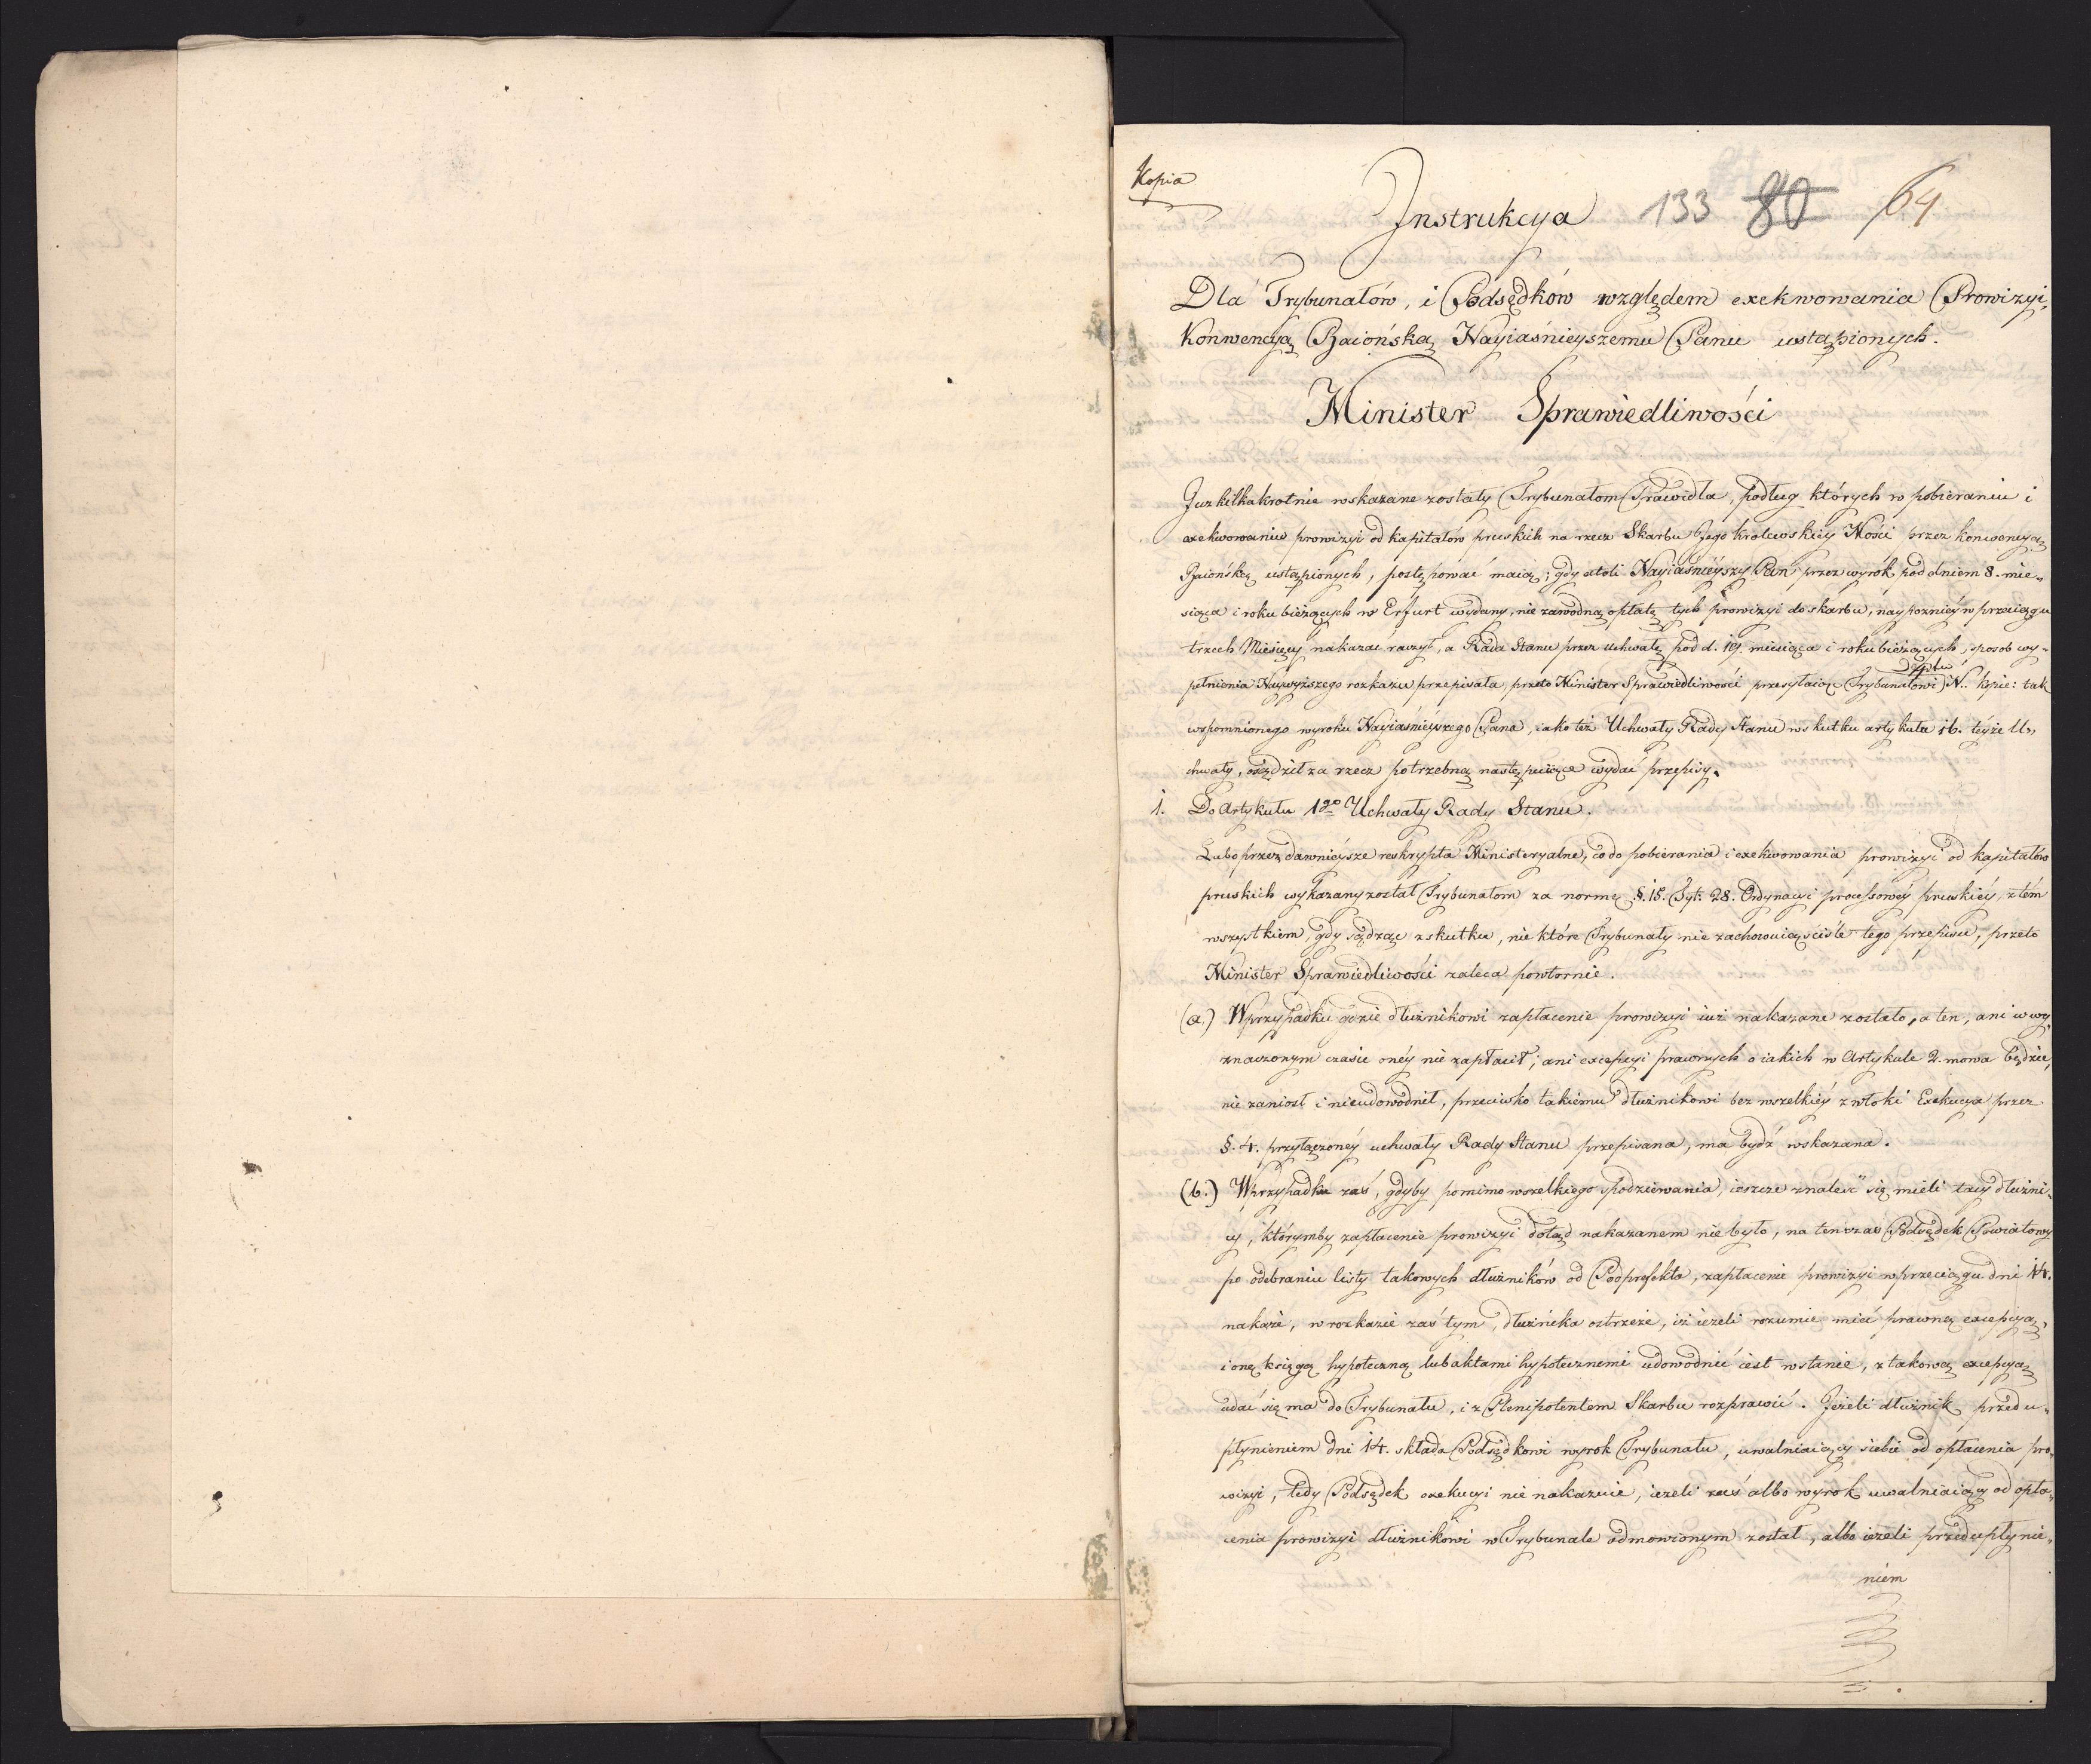 Kopia
Instrukcya 133 80 64
Dla Trybunałów, i Podsędków względem exekwowania Prowizyi,
Konwencyą Baiońską Nayiaśnieyszemu Panu ustąpionych.
Minister Sprawiedliwości
Juz kilkakrotnie wskazane zostały Trybunałom Prawidła, podług których w pobieraniu i
exekwowaniu prowizyi od kapitałów pruskich na rzecz Skarbu Jego Krolewskiey Mości przez konwencyą
Baiońską ustąpionych, postępować maią; gdy atoli Nayiaśnieyszy Pan przez wyrok pod dniem 8. mie„
siąca i roku bieżących w Erfurt wydany, nie zawodną opłatę tych prowizyi do skarbu, naypozniey w przeciągu
trzech Miesięcy nakazać raczył, a Rada Stanu przez uchwałę pod d. 19. miesiąca i roku bieżących, sposob wy„
pełnienia Naywyższego rozkazu przepisała, przeto Minister Sprawiedliwości przesyłaiąc Trybunałowi N.. kopie: tak
wspomnionego wyroku Nayiaśnieyszego Pana, iako też Uchwały Rady Stanu wskutku artykułu 16. teyże U„
chwały, osądził za rzecz potrzebną następuiące wydać przepisy.
1. Do Artykułu 1go Uchwały Rady Stanu.
Lubo przez dawnieysze reskrypta Ministeryalne, co do pobierania i exekwowania prowizyi od kapitałów
pruskich wykazany został Trybunałom za normę §. 15. Tyt. 28. Ordynacyi processowey pruskiey, ztém
wszystkiem, gdy sądząc z skutku, nie które Trybunały nie zachowuią ściśle tego przepisu, przeto
Minister Sprawiedliwości zaleca powtornie.
(a.) W przypadku gdzie dłużnikowi zapłacenie prowizyi iuż nakazane zostało, a ten, ani w wy„
znaczonym czasie oney nie zapłacił; ani excepcyi prawnych o iakich w Artykule 2. mowa będzie,
nie zaniosł i nieudowodnił, przeciwko takiemu dłużnikowi bez wszelkiey zwłoki Exekucya przez
§. 4. przyłączoney uchwały Rady Stanu przepisana, ma bydź wskazana.
(b.) W przypadku zaś, gdyby pomimo wszelkiego spodziewania, ieszcze znaleść się mieli tacy dłużni„
cy, którymby zapłacenie prowizyi dotąd nakazanem nie było, na tenczas Podsędek Powiatowy
po odebraniu listy takowych dłużników od Podprefekta, zapłacenie prowizyi w przeciągu dni 14.
nakaże, w rozkazie zaś tym, dłużnika ostrzeże, iż ieżeli rozumie mieć prawną excepcyą,
i onę księgą hypoteczną lub aktami hypotecznemi udowodnić iest wstanie, z takową excepcyą
udać się ma do Trybunału, i z Plenipotentem Skarbu rozprawić. Jeżeli dłużnik przed u„
płynieniem dni 14. składa Podsędkowi wyrok Trybunału, uwalniaiący siebie od opłacenia pro„
wizyi, tedy Podsędek exekucyi nie nakazuie, ieżeli zaś albo wyrok uwalniaiący od opła„
cenia prowizyi dłużnikowi w Trybunale odmowionym został, albo ieżeli przed upłynie„
niem